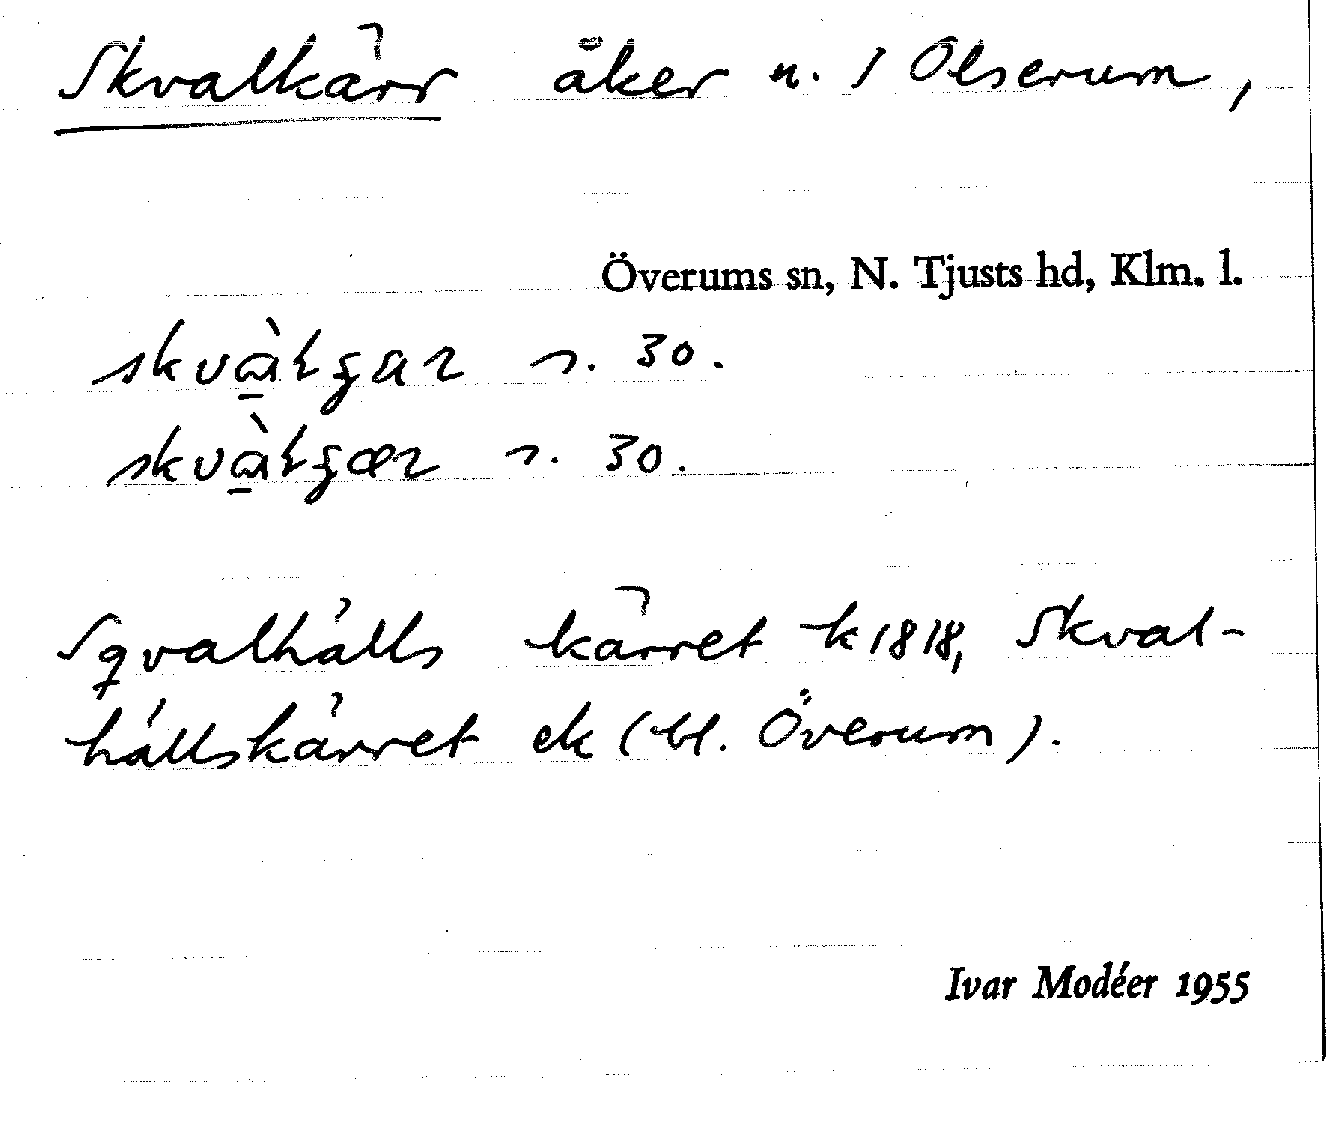 Skvalkärr åker n. 1 Olserum,
Överums sn, N. Tjusts hd, Klm. l.
r. 30.
r. 30.
Sqvalhälls kärret k 1818, Skval-
hällskärret ek (bl. Överum).
Ivar Modéer 1955